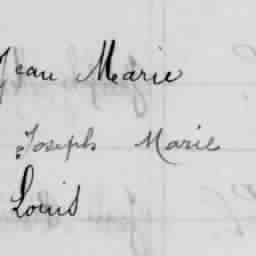 Jean Marie
Joseph Marie
Louis